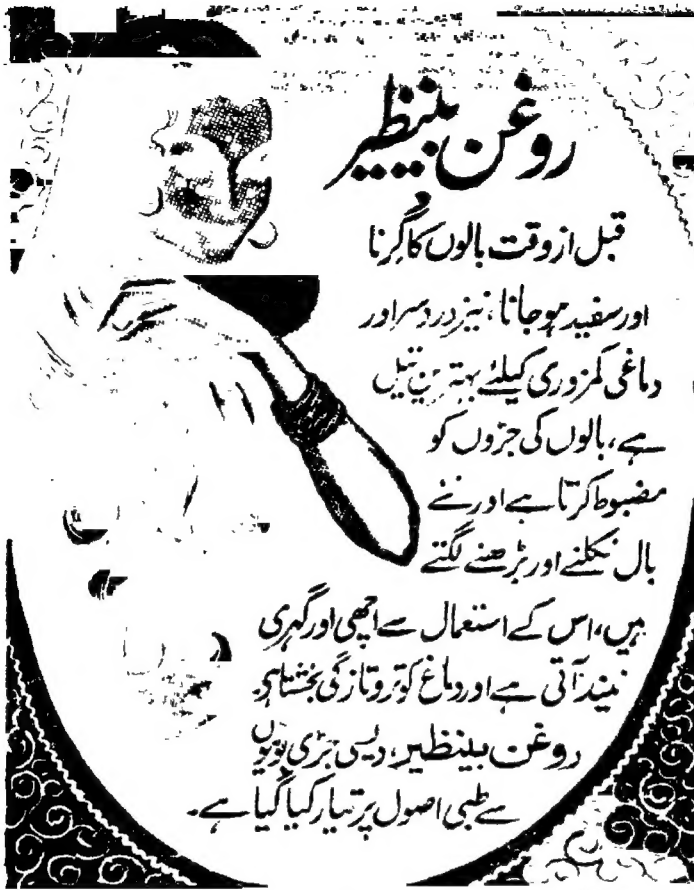 روغن بینظیر
قبل از وقت بالوں کا گرنا
اور سفید ہو جانا، نیز دردِ سر اور
دماغی کمزوری کیلئے بہترین تیل
ہے، بالوں کی جڑوں کو
مضبوط کرتا ہے اور نئے
بال نکلنے اور بڑھنے لگتے
ہیں، اس کے استعمال سے اچھی اور گہری
نیند آتی ہے اور دماغ کو تروتازگی بخشتا ہی۔
روغن بینظیر، دیسی جڑی بوٹیوں
سے طبی اصول پر تیار کیا گیا ہے۔